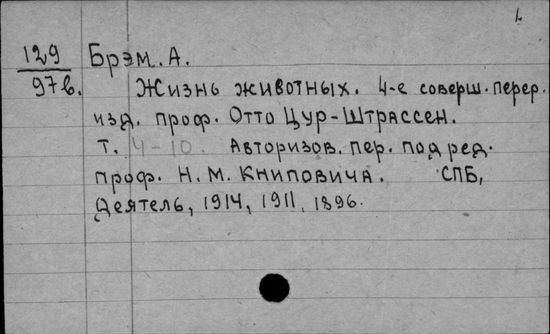 129
97в.
Брэм. А.
Жизнь животных. 4-е соверш. перер.
изд. проф. Отто Цур-Штрассен.
т. 4-10. Авторизов. пер. под ред.
проф. Н. М. Книповича. СПБ,
Деятель, 1914, 1911, 1896.